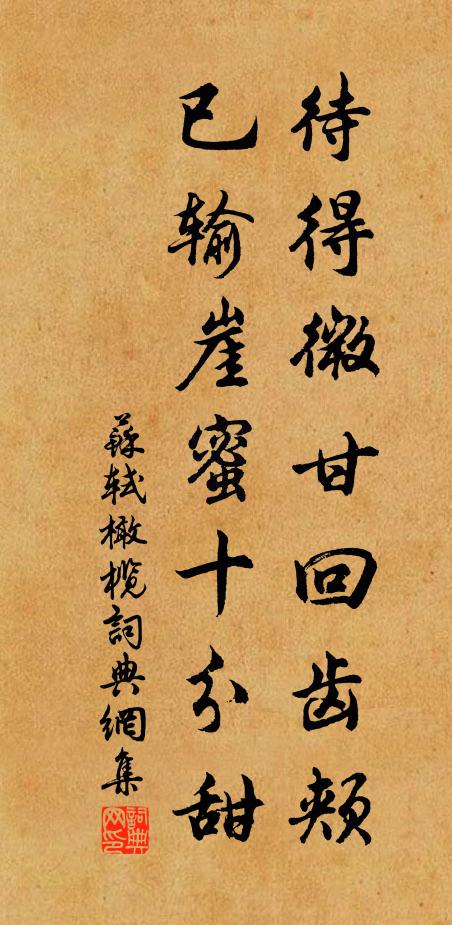 待得微甘回齿颊
已输崖蜜十分甜
蘇轼橄榄詞典網集
詞典
网印